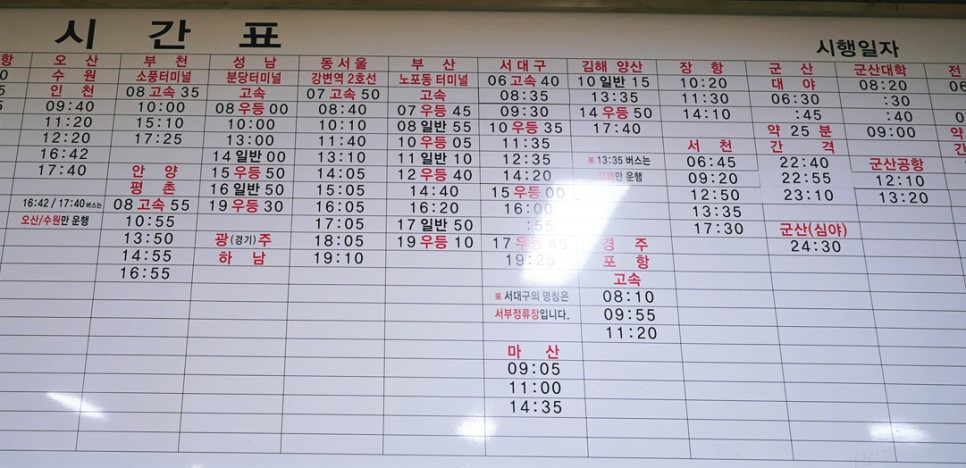 시 간 표
시행일자
항
오 산
수 원
인 천
09:40
11:20
12:20
16:42
17:40
16:42 / 17:40 버스는
오산/수원만 운행
부 천
소풍터미널
08 고속 35
10:00
15:10
17:25
안 양
평 촌
08 고속 55
10:55
13:50
14:55
16:55
성 남
분당터미널
고속
08 우등 00
10:00
13:00
14 일반 00
15 우등 50
16 일반 50
19 우등 30
광(경기)주
하 남
동서울
강변역 2호선
07 고속 50
08:40
10:10
11:40
13:10
14:05
15:05
16:05
17:05
18:05
19:10
부 산
노포동 터미널
고속
07 우등 45
08 일반 55
10 우등 05
11 일반 10
12 우등 40
14:40
16:20
17 일반 50
19 우등 10
서대구
06 고속 40
08:35
09:30
10 우등 35
11:35
12:35
14:20
15 우등 00
16:00
:55
17 우등 45
19:25
※ 서대구의 명칭은
서부정류장입니다.
마 산
09:05
11:00
14:35
김해 양산
10 일반 15
13:35
14 우등 50
17:40
※ 13:35 버스는
김해만 운행
경 주
포 항
고속
08:10
09:55
11:20
장 항
10:20
11:30
14:10
서 천
06:45
09:20
12:50
13:35
17:30
군 산
대 야
06:30
:45
약 25 분
간 격
22:40
22:55
23:10
군산(심야)
24:30
군산대학
08:20
:30
:40
09:00
군산공항
12:10
13:20
전
약
간